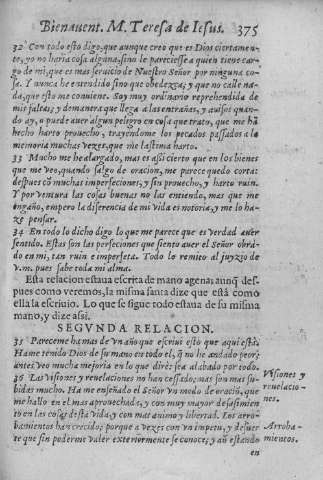 Bienauent. M. Teresa de Iesus. 375
32 Con todo esto digo, que aunque creo que es Dios ciertamen-
te, yo no haria cosa alguna, sino le pareciesse a quien tiene car-
go de mi, que es mas seruicio de Nuestro Señor por ninguna co-
sa. Y nunca he entendido sino que obedezca; y que no calle na-
da, que esto me conuiene. Soy muy ordinario reprehendida de
mis faltas; y de manera que llega a las entrañas, y auisos quan-
do ay, o puede auer algun peligro en cosa que trato, que me hã
hecho harto prouecho, trayendome los pecados passados a la
memoria muchas vezes, que me lastima harto.
33 Mucho me he alargado, mas es assi cierto que en los bienes
que me veo, quando salgo de oracion, me parece quedo corta:
despues cõ muchas imperfeciones, y sin prouecho, y harto ruin.
Y por ventura las cosas buenas no las entiendo, mas que me
engaño, empero la diferencia de mi vida es notoria, y me lo ha-
ze pensar.
34 En todo lo dicho digo lo que me parece que es verdad auer
sentido. Estas son las perfeciones que siento auer el Señor obra-
do en mi, tan ruin e imperfeta. Todo lo remito al juyzio de
v.m. pues sabe toda mi alma.
Esta relacion estaua escrita de mano agena; aunq̃ des-
pues como veremos, la misma santa dize que està como
ella la escriuio. Lo que se sigue todo estaua de su misma
mano, y dize assi.
SEGVNDA RELACION.
35 Pareceme ha mas de vn año que escriui esto que aqui està.
Hame tenido Dios de su mano en todo el, q̃ no he andado peor;
antes veo mucha mejoria en lo que dirè: sea alabado por todo.
36 Las visiones y reuelaciones no han cessado; mas son mas su-
bidas mucho. Ha me enseñado el Señor vn modo de oraciõ, que
me hallo en el mas aprouechada, y con muy mayor desasimien
to en las cosas desta vida, y con mas animo y libertad. Los arro-
bamientos han crecido; porque a vezes con vn impetu, y de suer
te que sin poderme valer exteriormente se conoce; y aũ estando
en
Visiones y
reuelacio-
nes.
Arroba-
mientos.